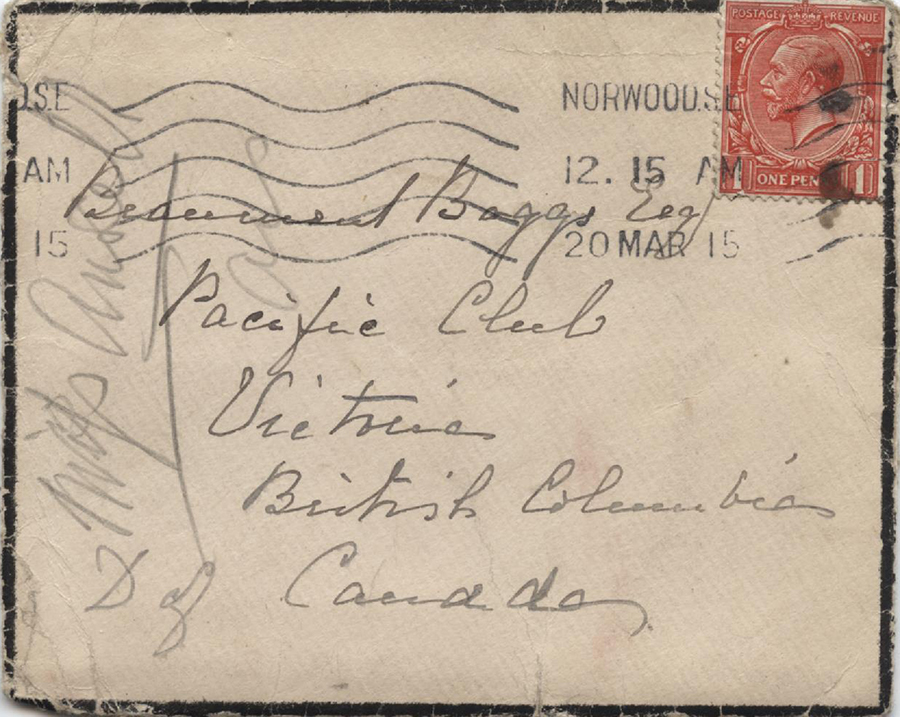 POSTAGE REVENUE
ONE PENNY
1 1
D.S.E NORWOOD.S.E
AM 12. 15 AM
15 20 MAR 15
Beaumont Boggs Esq
Pacific Club
Victoria
British Columbia
Canada
Miss
D of